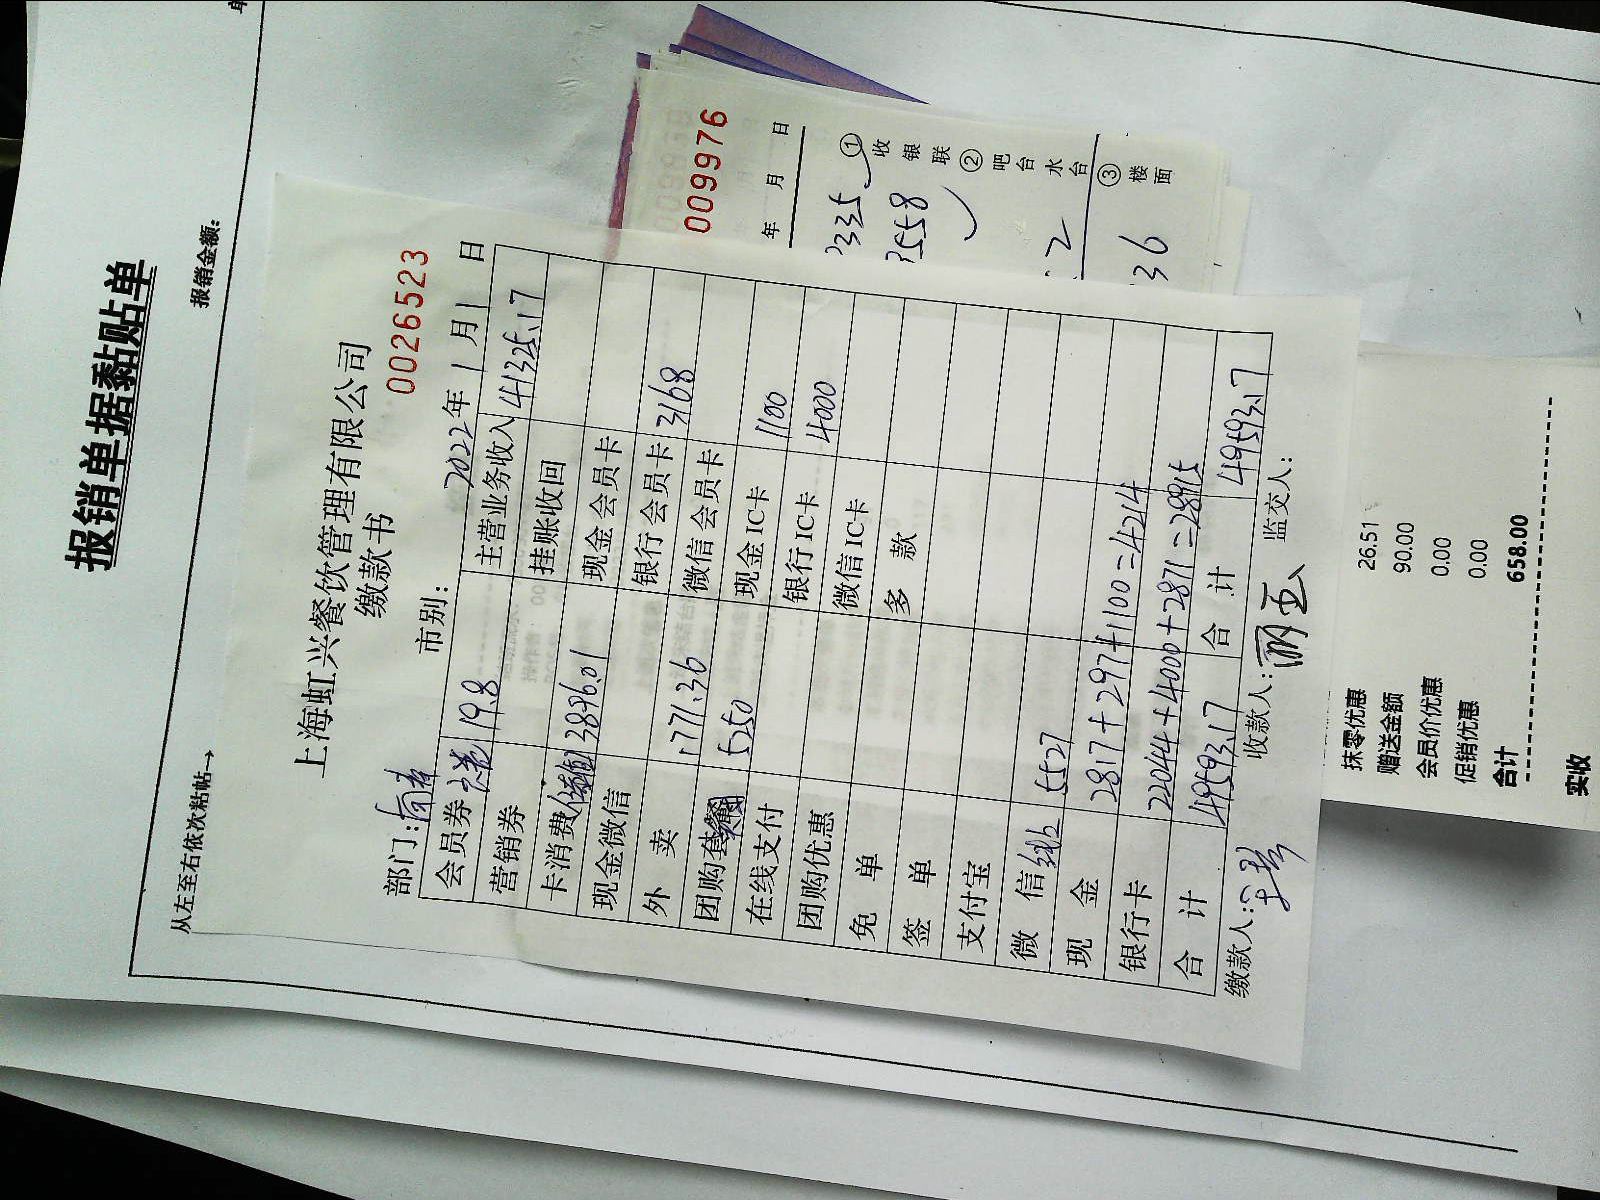 报销单据黏贴单
报销金额:
从左至右依次粘帖→
上海虹兴餐饮管理有限公司
缴款书
0026523
部门: 市别: 2022年1月1日
会员券 19.8 主营业务收入 41325.17
营销券 挂账收回
卡消费 3896.01 现金会员卡
现金微信 银行会员卡 3168
外卖 1771.36 微信会员卡
团购套餐 5250 现金IC卡 1100
在线支付 银行IC卡 4000
团购优惠 微信IC卡
免单 多款
签单
支付宝
微信 5527
现金 2817+297+1100=4214
银行卡 22044+4000+2871=28915
合计 49593.17 合计 49593.17
缴款人: 收款人: 监交人:
009976
年 月 日
3335 ①收银联
3558 ②吧台水台
2
36 ③楼面
抹零优惠 26.51
赠送金额 90.00
会员价优惠 0.00
促销优惠 0.00
合计 658.00
实收